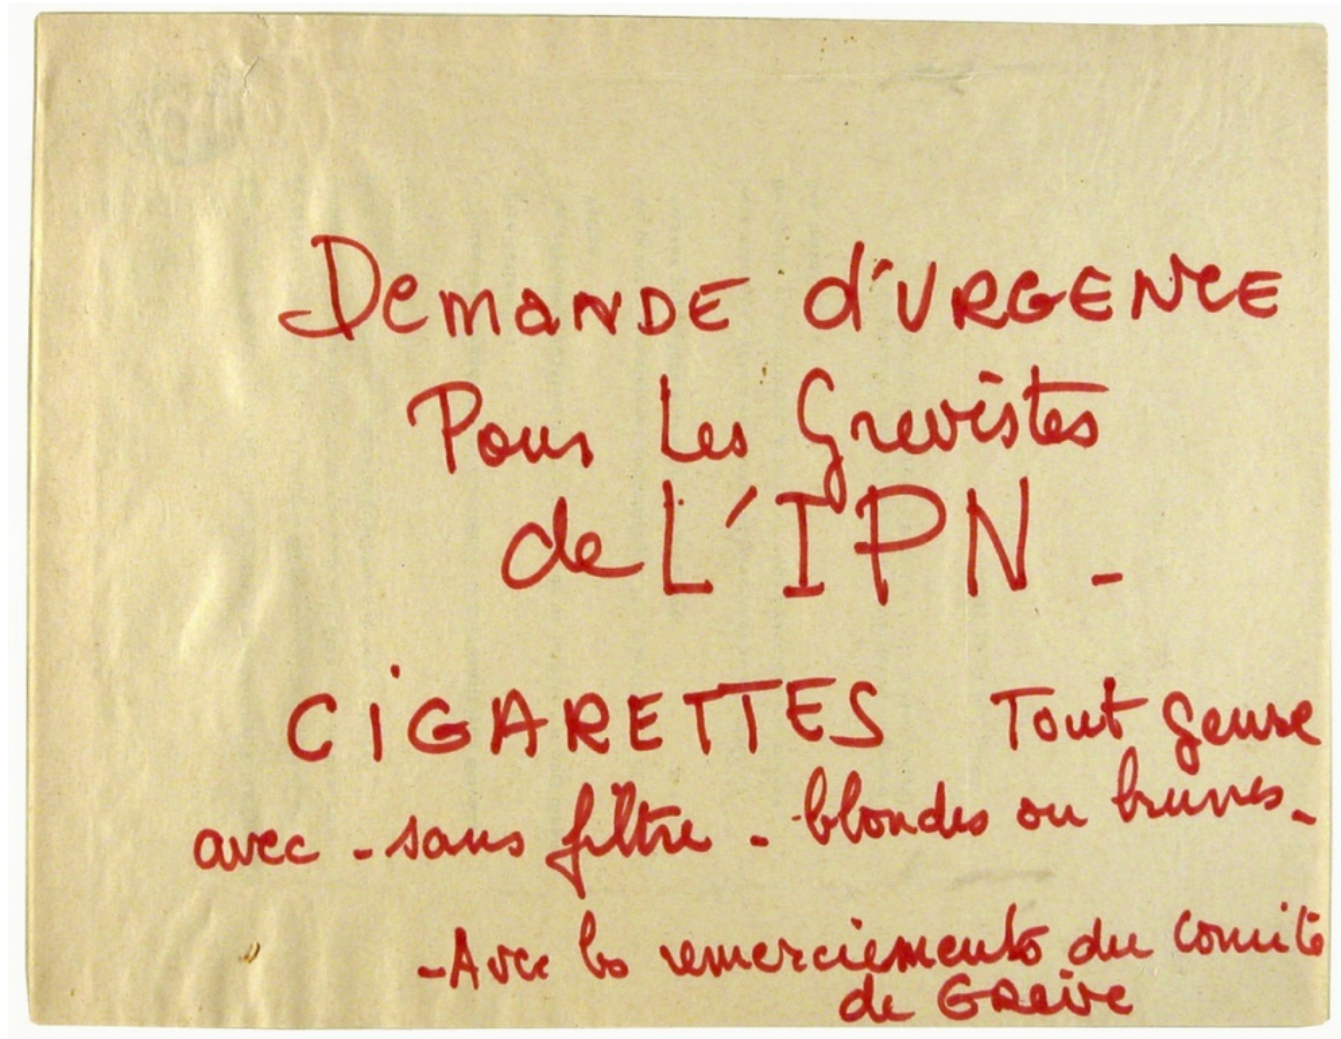 Demande d'URGENCE
Pour Les Grevistes
de L'IPN -
CIGARETTES Tout genre
avec - sans filtre - blondes ou brunes -
- Avec les remerciements du Comité
de Greive